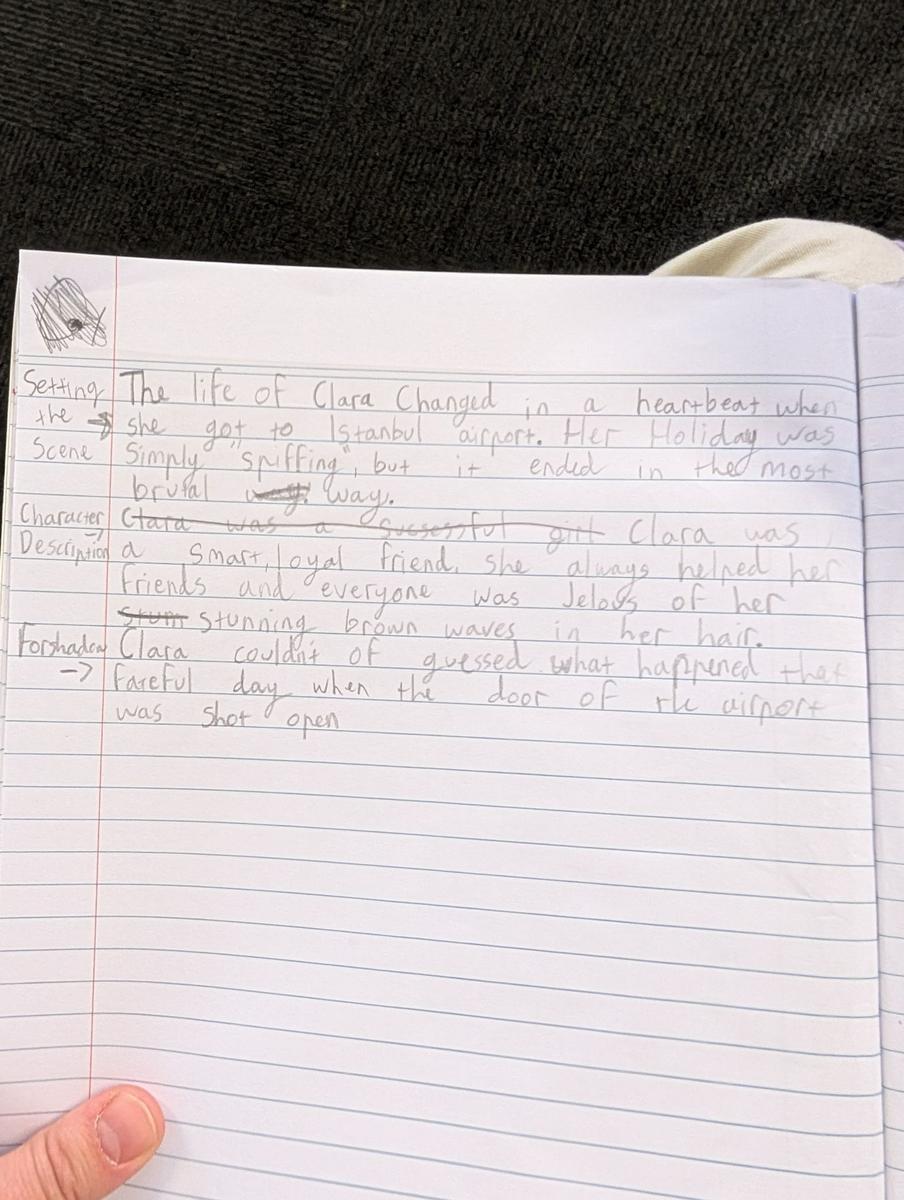 Setting The life of Clara Changed in a heartbeat when
the → she got to Istanbul airport. Her Holiday was
Scene Simply "spiffing", but it ended in the most
brutal way. way.
Character → Clara was a sucsessful girl Clara was
Description a smart, loyal friend, she always helped her
friends and everyone was Jelous of her
stunn stunning brown waves in her hair.
Forshadow Clara couldn't of guessed what happened that
→ fateful day when the door of the airport
was shot open